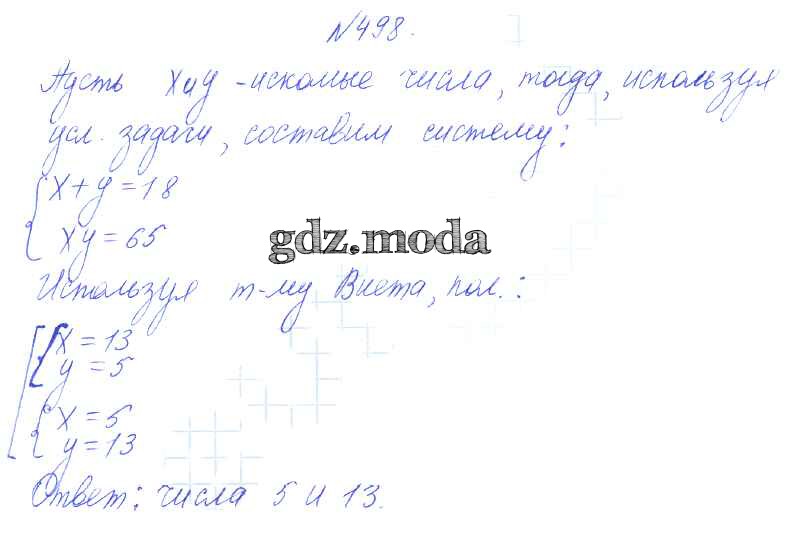 №498.
Пусть x и y - искомые числа, тогда, используя
усл. задачи, составим систему:
x + y = 18
xy = 65
gdz.moda
Используя т-му Виета, пол.:
x = 13
y = 5
x = 5
y = 13
Ответ: числа 5 и 13.